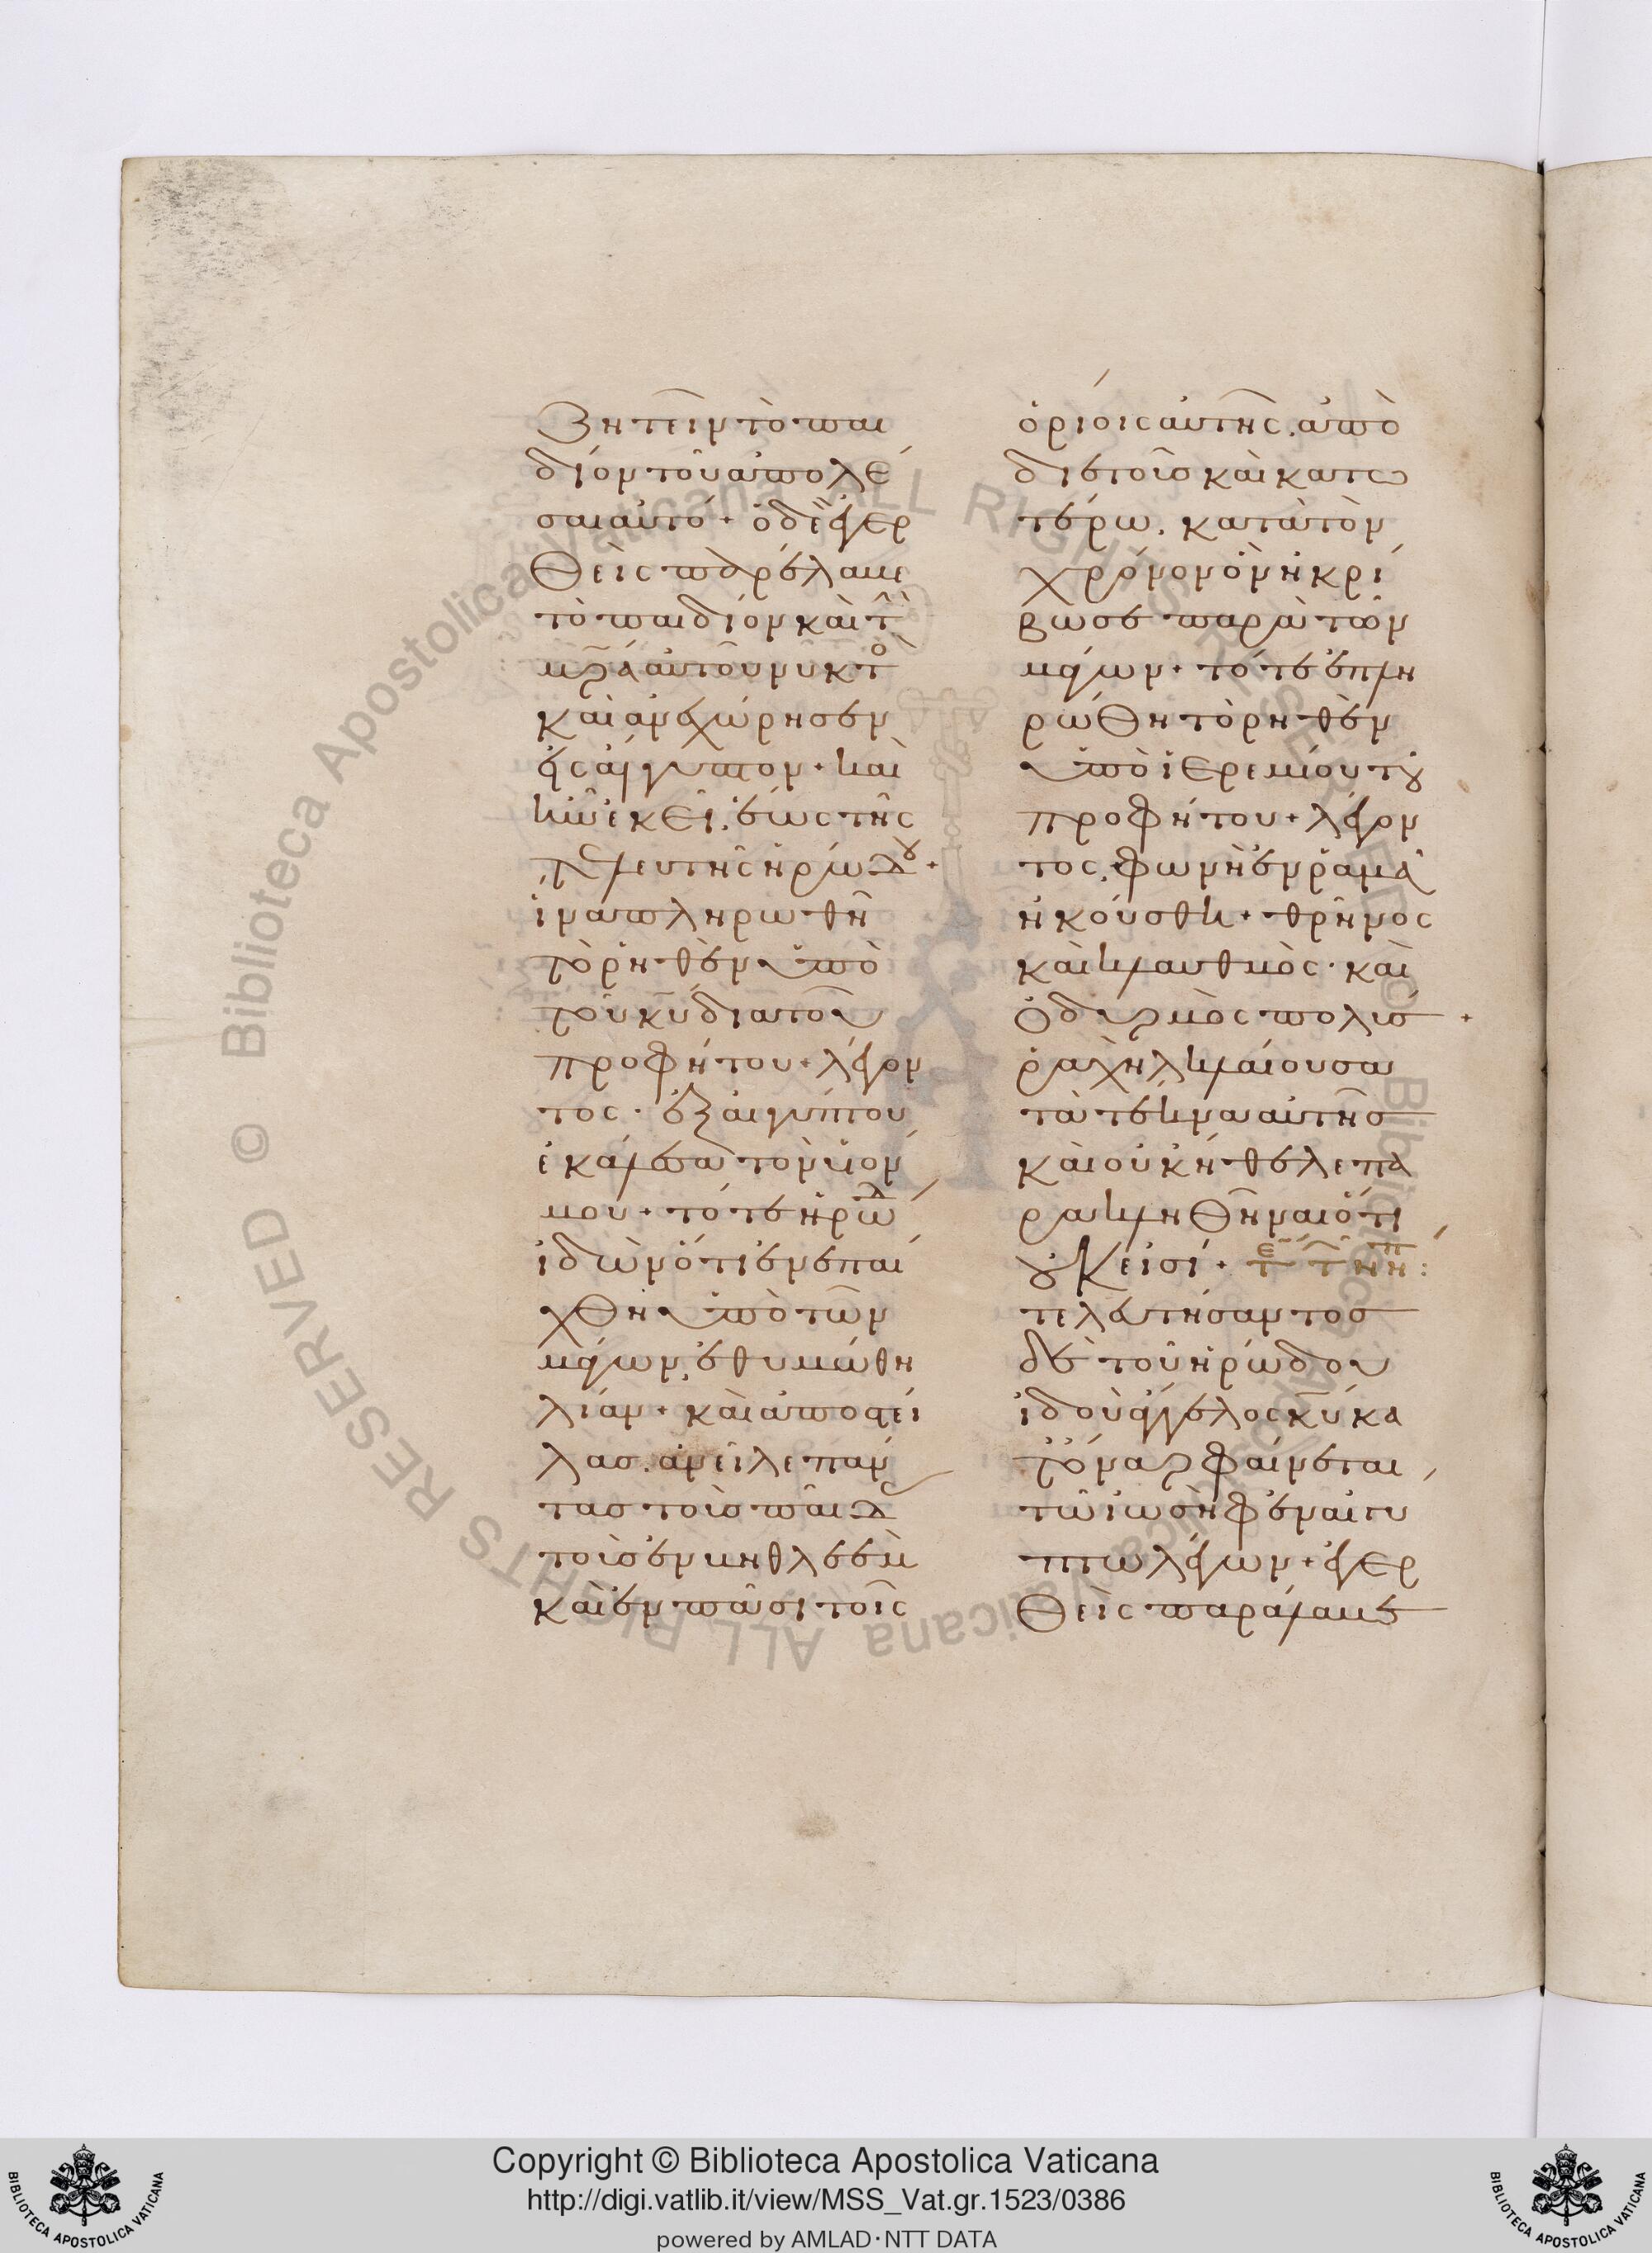 ζητεῖν τὸ παι
δίον τοῦ ἀπολέ
σαι αὐτό + ὁ δὲ ἐγερ
θεὶς παρέλαβε
τὸ παιδίον καὶ τ
μρα αὐτοῦ νυκτο
καὶ ἀνεχώρησεν
εἰς αἴγυπτον + καὶ
ἦν ἐκεῖ, ἕως τῆς
τελευτῆς ἡρώδου +
ἵνα πληρωθῆ
τὸ ῥηθὲν ὑπὸ
τοῦ κυ διὰ τοῦ
προφήτου + λέγον
τος · ἐξ αἰγύπτου
ἐκάλεσα τὸν υἱόν
μου + τότε ἡρωδ
ἰδὼν ὅτι ἐνεπαί
χθη ὑπὸ τῶν
μάγων, ἐθυμώθη
λίαν + καὶ ἀποστεί
λας. ἀνεῖλε πάν
τας τοὺς παιδ
τοὺς ἐν βηθλεὲμ
καὶ ἐν πᾶσι τοῖς
ὁρίοις αὐτῆς. ἀπὸ
διετοῦς καὶ κατω
τέρω. κατὰ τὸν
χρόνον ὃν ἠκρί
βωσε παρὰ τῶν
μάγων + τότε ἐπλη
ρώθη τὸ ρηθὲν
ὑπὸ ἱερεμίου τοῦ
προφήτου + λέγον
τος, φωνὴ ἐν ῥαμὰ
ἠκούσθη + θρῆνος
καὶ κλαυθμὸς · καὶ
ὀδυρμὸς πολύς +
ῥαχὴλ κλαίουσα
τὰ τέκνα αὐτῆς
καὶ οὐκ ἤθελε πα
ρακληθῆναι ὅτι
οὐκ εἰσί +
τελευτήσαντος
δὲ τοῦ ἡρώδου
ἰδοὺ ἄγγελος κυ κα
τ ὄναρ φαίνεται
τῶ ἰωσὴφ ἐν αἰγυ
πτω λέγων + ἐγερ
θεὶς παράλαβε
Copyright © Biblioteca Apostolica Vaticana
http://digi.vatlib.it/view/MSS_Vat.gr.1523/0386
powered by AMLAD·NTT DATA
BIBLIOTECA APOSTOLICA VATICANA
BIBLIOTECA APOSTOLICA VATICANA
© Biblioteca Apostolica Vaticana ALL RIGHTS RESERVED
© Biblioteca Apostolica Vaticana ALL RIGHTS RESERVED